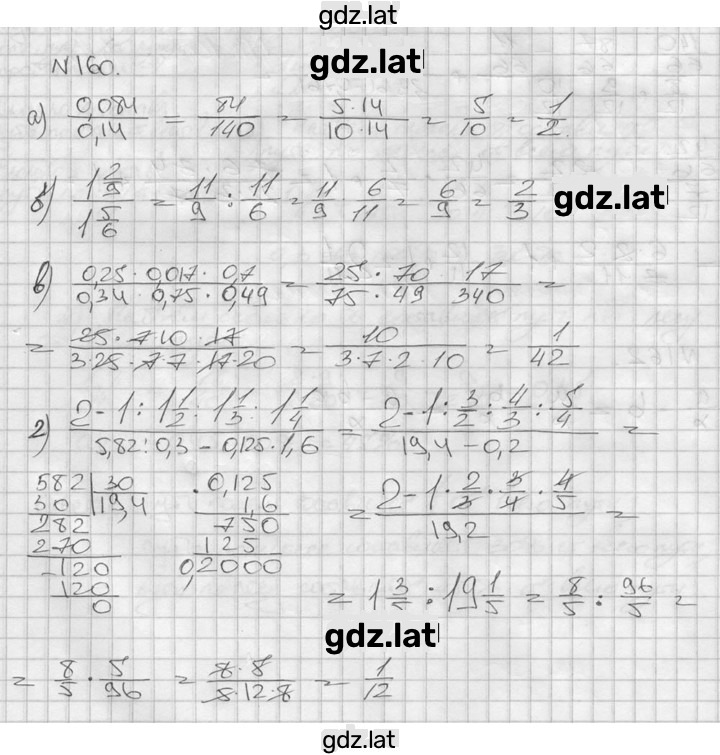 gdz.lat
N160.
gdz.lat
а) 0,084/0,14 = 84/140 = 5·14/10·14 = 5/10 = 1/2.
б) 1 2/9 / 1 5/6 = 11/9 : 11/6 = 11/9 · 6/11 = 6/9 = 2/3
gdz.lat
в) 0,25 · 0,017 · 0,7 / 0,34 · 0,75 · 0,49 = 25 · 70 · 17 / 75 · 49 · 340 =
= 25 · 7·10 · 17 / 3·25 · 7·7 · 17·20 = 10 / 3·7·2·10 = 1/42
г) 2 - 1 : 1 1/2 : 1 1/3 : 1 1/4 / 5,82 : 0,3 - 0,125 · 1,6 = 2 - 1 : 3/2 : 4/3 : 5/4 / 19,4 - 0,2 =
582 | 30
30 | 19,4
282
270
-120
120
0
· 0,125
1,6
750
125
0,2000
= 2 - 1 · 2/3 · 3/4 · 4/5 / 19,2 =
= 1 3/5 : 19 1/5 = 8/5 : 96/5 =
gdz.lat
= 8/5 · 5/96 = 8·8 / 8·12·8 = 1/12
gdz.lat